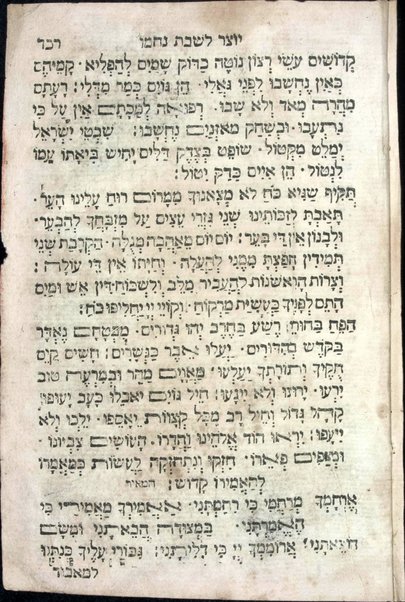 יוצר לשבת נחמו רכד
קדושים עשי רצון נוטה כדוק שמים להפליא · קמיהם
כאין נחשבו לפני נאלי · הן גוים כמר מדלי : רעתם
מהרה מאד ולא שבו · רפואה למכתם אין על כי
נתעבו · ובשחק מאזנים נחשבו : שבטי ישראל
ימלט מקטול · שופט בצדק דלים יחיש ביאתו עמו
לנטול · הן איים כדק יטול :
תקיף שגיא כח לא מצאנוך ממרום רוח עלינו הער ·
תאבת לזכותינו שני גזרי עצים על מזבחך להבער ·
ולבנון אין די בער : יום יום מאהבה מגולה · הקרבת שני
תמידין חפצת ממני להעלה · וחיתו אין די עולה :
וצרות הראשנות להעביר מלב · ולשכוח דין אש ומים
התם לפניך כעשית מרקוח · וקויי יי יחליפו כח :
הפח בחוח · רשע בחרב יהו גדורים · מבטחם נאדר
בקדש בהדורים · יעלו אבר כנשרים : חשים קים
חקיך ותורתך יעלעו · מאוים מהר ובמרעה טוב
ירעו · ירוצו ולא ייגעו : חיל גוים יאכלו כעב יעופו
קהל גדול וחיל רב מכל קצוות יאספו · ילכו ולא
ייעפו : יראו הוד אלהינו והדרו · העושים צביונו
ומצפים פארו : חזקו ונתחזקה לעשות כמאמרו
להאמירו קדוש : המאיר
ארחמך מרחמי כי רחמתני · אאמירך מאמירי כי
האמרתני · במצודה הבאתני ומשם
הוצאתני : ארוממך יי כי דליתני : גבורי עליך כנתנו
למאכיד